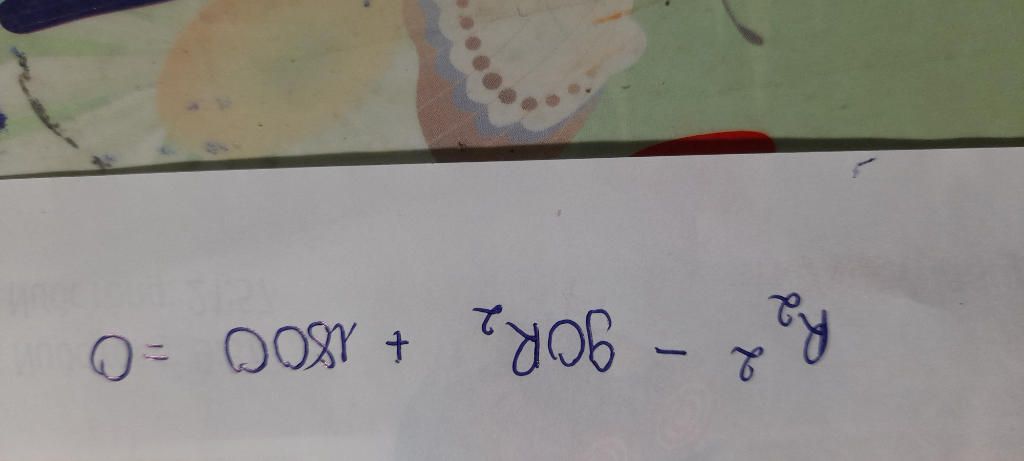 R₂² - 90R₂ + 1800 = 0